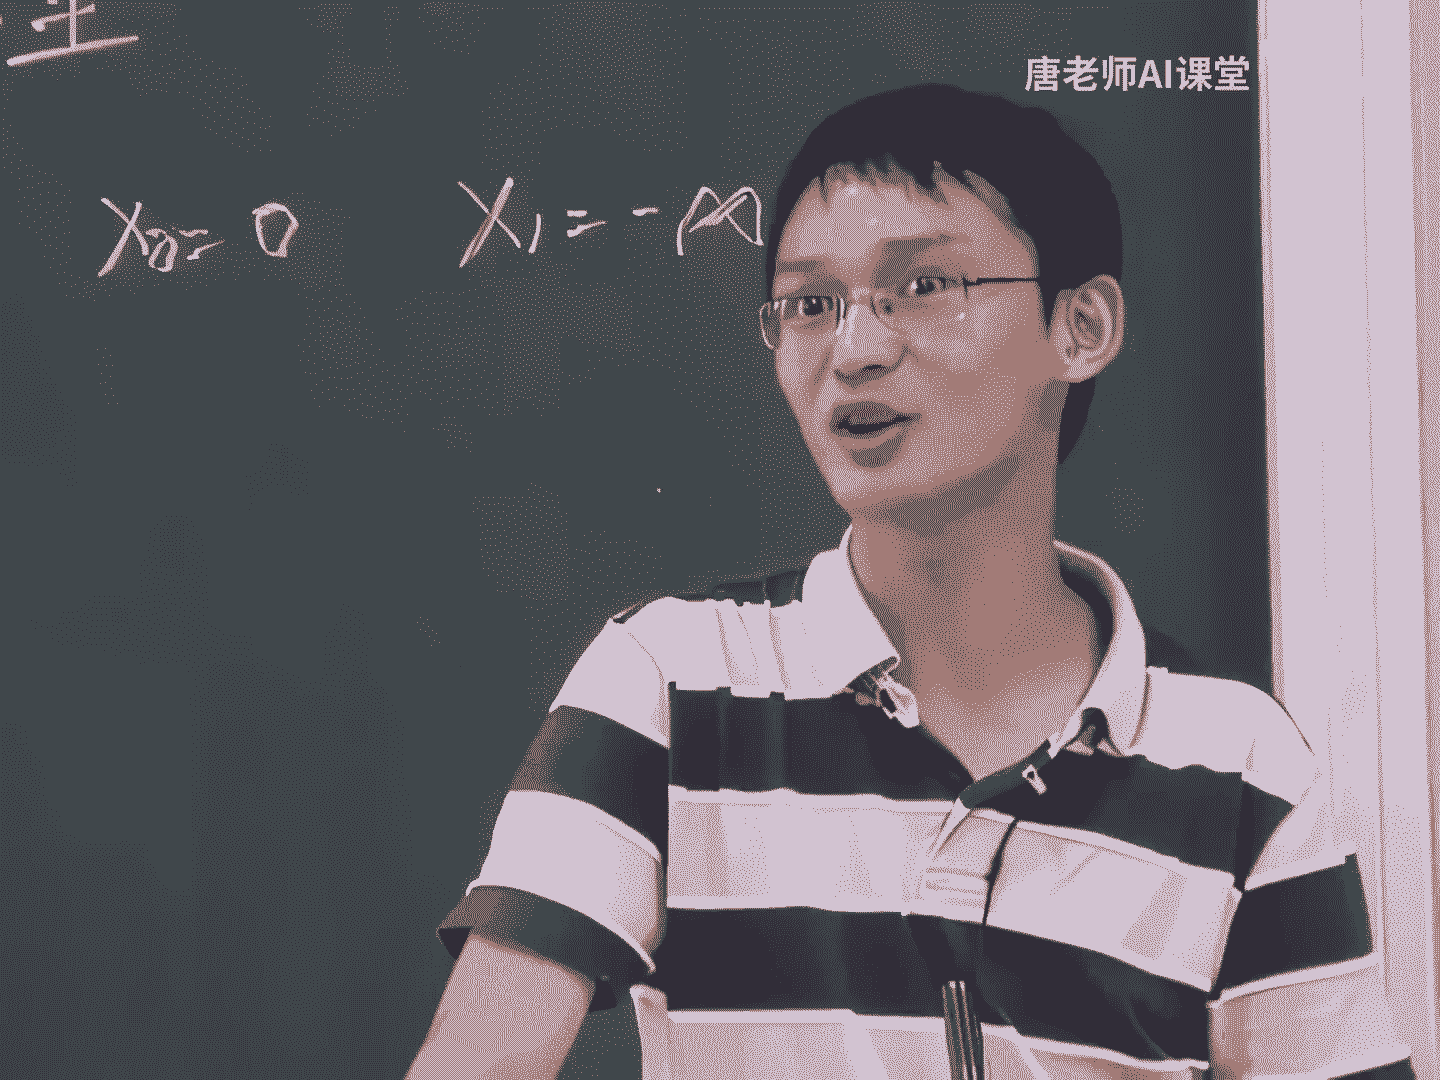 唐老师AI课堂
X₀=0 X₁=-∞